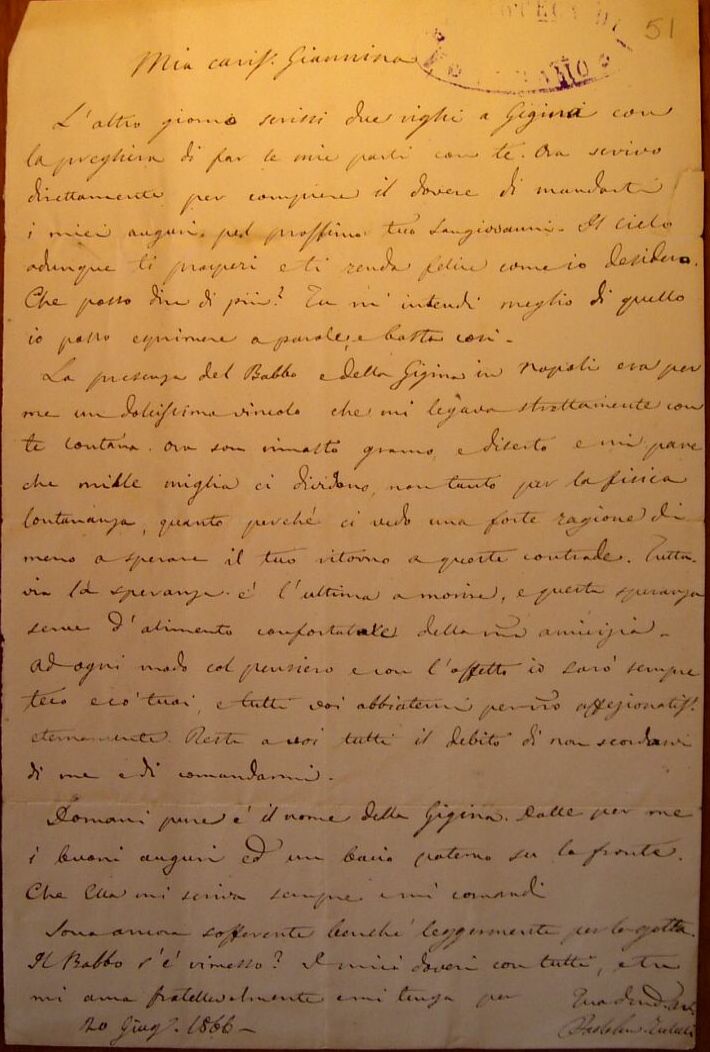 51
Mia cariss. Giannina
L'altro giorno scrissi due righi a Gigina con
la preghiera di far le mie parti con te. Ora scrivo
direttamente per compiere il dovere di mandarti
i miei auguri pel prossimo tuo Sangiovanni. Il Cielo
adunque ti prosperi e ti renda felice come io desidero.
Che posso dire di più? Tu m'intendi meglio di quello
io posso esprimere a parole, e basta così.
La presenza del Babbo e della Gigina in Napoli era per
me un dolcissimo vincolo che mi legava strettamente con
te lontana. Ora son rimasto gramo, e diserto e mi pare
che mille miglia ci dividono, non tanto per la fisica
lontananza, quanto perché ci vedo una forte ragione di
meno a sperare il tuo ritorno a queste contrade. Tutta-
via la speranza è l'ultima a morire, e questa speranza
serve d'alimento confortabile della mia amicizia.
Ad ogni modo col pensiero e con l'affetto io sarò sempre
teco e co' tuoi, e tutti voi abbiatemi per vro affezionatiss.
eternamente. Resta a voi tutti il debito di non scordarvi
di me e di comandarmi.
Domani pure è il nome della Gigina. Dalle per me
i buoni auguri ed un bacio paterno su la fronte.
Che Ella mi scriva sempre e mi comandi
Sono ancora sofferente benché leggermente per la gotta.
Il Babbo s'è rimesso? I miei doveri con tutti, e tu
mi ama fratellevolmente e mi tenga per
20 Giug. 1866